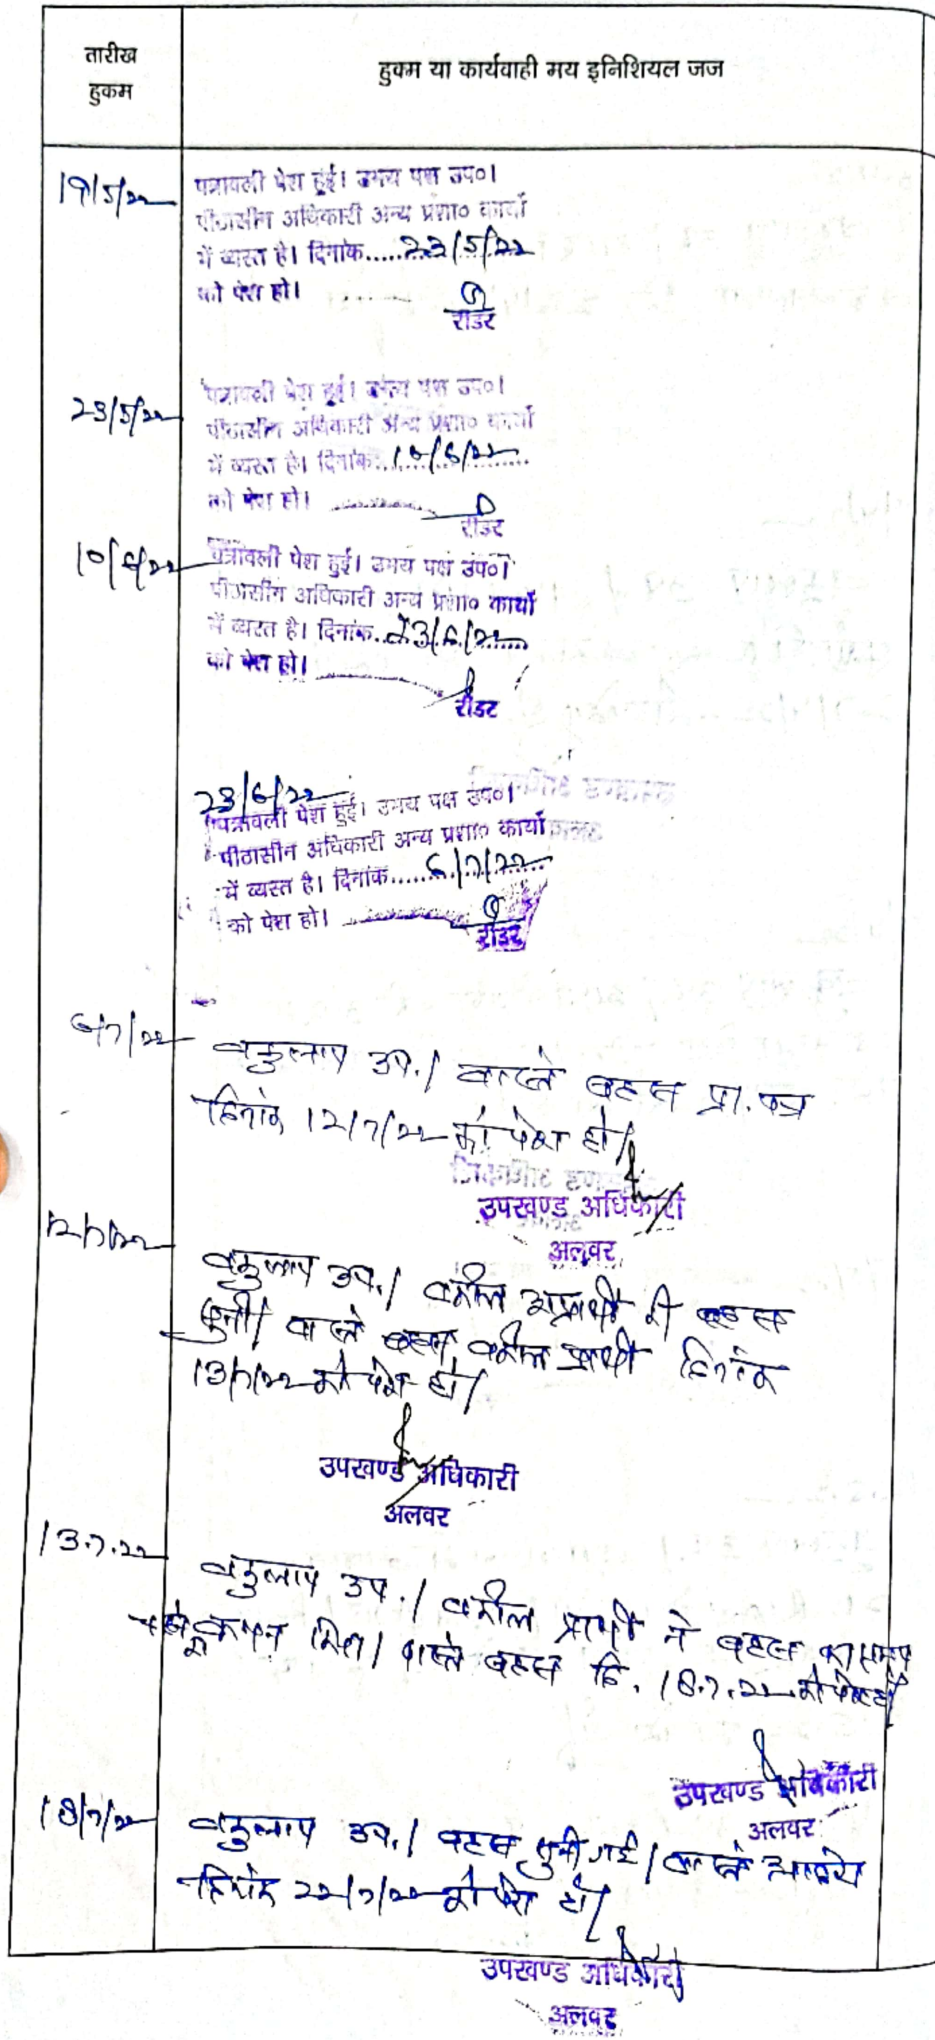 तारीख
हुकम
हुकम या कार्यवाही मय इनिशियल जज
19/5/22
पत्रावली पेश हुई। उभय पक्ष उप०।
पीठासीन अधिकारी अन्य प्रशा० कार्यो
में व्यस्त है। दिनांक.....23/5/22
को पेश हो।
रीडर
23/5/22
पत्रावली पेश हुई। उभय पक्ष उप०।
पीठासीन अधिकारी अन्य प्रशा० कार्यो
में व्यस्त है। दिनांक..10/6/22
को पेश हो।
रीडर
10/6/22
पत्रावली पेश हुई। उभय पक्ष उप०।
पीठासीन अधिकारी अन्य प्रशा० कार्यो
में व्यस्त है। दिनांक..23/6/22
को पेश हो।
रीडर
23/6/22
पत्रावली पेश हुई। उभय पक्ष उप०।
पीठासीन अधिकारी अन्य प्रशा० कार्यो
में व्यस्त है। दिनांक......6/7/22
को पेश हो।
रीडर
6/7/22
वकुलाय उप./ वास्ते बहस प्रा. पत्र
दिनांक 12/7/22 को पेश हो/
उपखण्ड अधिकारी
अलवर
12/7/22
वकुलाय उप./ वकील अप्रार्थी की बहस
सुनी/ वास्ते बहस वकील प्रार्थी दिनांक
13/7/22 को पेश हो/
उपखण्ड अधिकारी
अलवर
13.7.22
वकुलाय उप./ वकील प्रार्थी ने बहस का समय
किया/ वास्ते बहस दि. 18.7.22 को पेश हो
उपखण्ड अधिकारी
अलवर
18/7/22
वकुलाय उप./ बहस सुनी गई/ वास्ते आदेश
दिनांक 22/7/22 को पेश हो/
उपखण्ड अधिकारी
अलवर